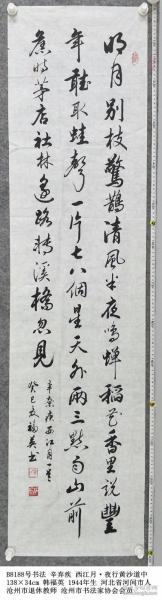 明月别枝驚鹊清风半夜鸣蝉稻花香里說豐
年聽取蛙聲一片七八個星天外兩三點雨山前
舊时茅店社林邊路转溪橋忽見
辛棄疾西江月一首
癸巳文福英書
B8188号书法 辛弃疾 西江月·夜行黄沙道中
138×34cm 韩福英 1944年生 河北省河间市人
沧州市退休教师 沧州市书法家协会会员